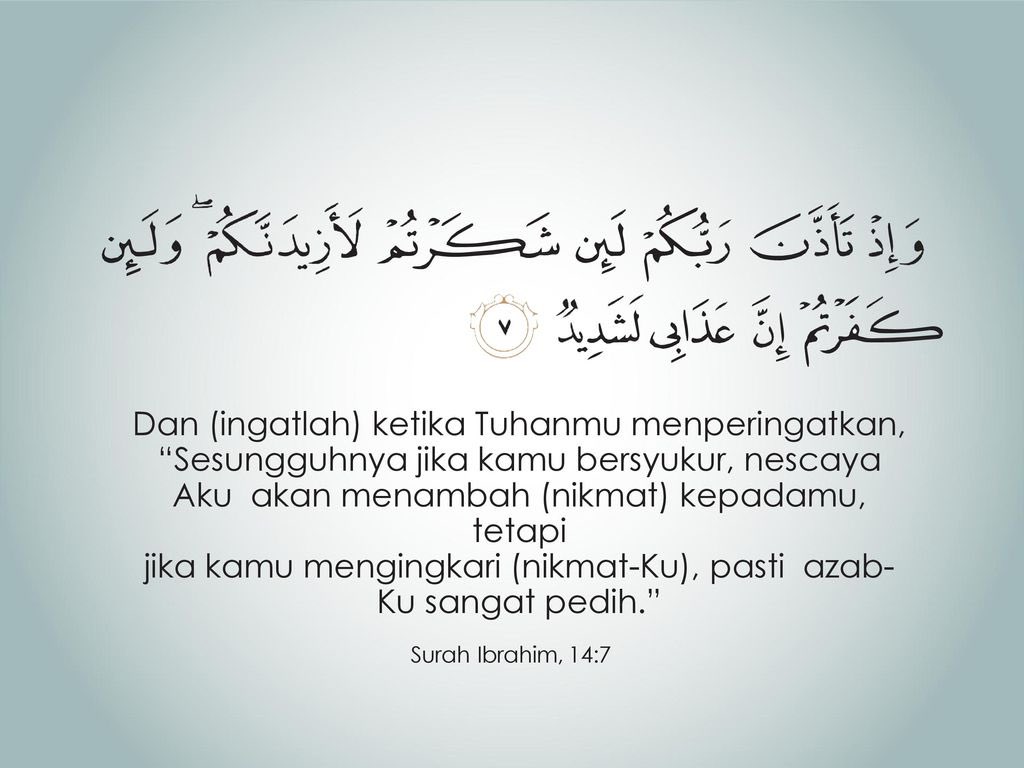 وَإِذۡ تَأَذَّنَ رَبُّكُمۡ لَئِن شَكَرۡتُمۡ لَأَزِيدَنَّكُمۡۖ وَلَئِن
كَفَرۡتُمۡ إِنَّ عَذَابِي لَشَدِيدٞ ٧
Dan (ingatlah) ketika Tuhanmu menperingatkan,
“Sesungguhnya jika kamu bersyukur, nescaya
Aku  akan menambah (nikmat) kepadamu,
tetapi
jika kamu mengingkari (nikmat-Ku), pasti  azab-
Ku sangat pedih.”
Surah Ibrahim, 14:7